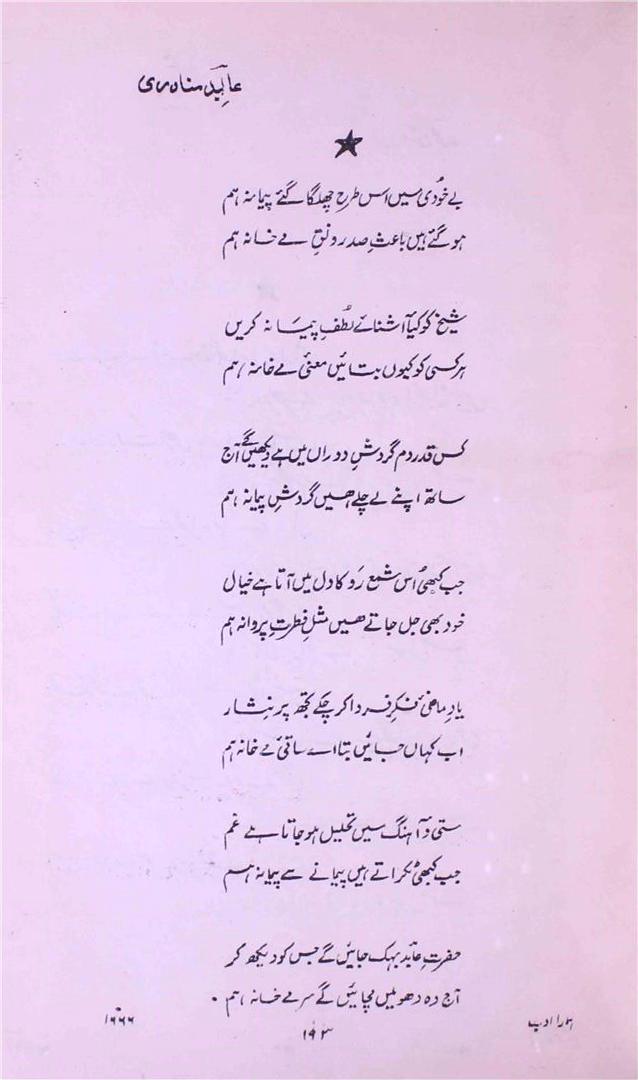 عابد مناوری
بے خودی میں اس طرح چھلکا گئے پیمانہ ہم
ہو گئے ہیں باعثِ صد رونقِ مے خانہ ہم
شیخ کو کیا آشنائے لطفِ پیمانہ کریں
ہر کسی کو کیوں بتائیں معنیٔ مے خانہ ہم
کس قدر دم گردشِ دوراں میں ہے دیکھیں گے آج
ساتھ اپنے لے چلے ہیں گردشِ پیمانہ ہم
جب کبھی اُس شمع رَو کا دل میں آتا ہے خیال
خود بھی جل جاتے ہیں مثلِ فطرتِ پروانہ ہم
یادِ ماضی فکرِ فردا کر چکے تجھ پر نثار
اب کہاں جائیں بتا اے ساقیٔ مے خانہ ہم
مستی و آہنگ میں تحلیل ہو جاتا ہے غم
جب کبھی ٹکراتے ہیں پیمانے سے پیمانہ ہم
حضرتِ عابد بہک جائیں گے جس کو دیکھ کر
آج وہ دھومیں مچائیں گے سرِ مے خانہ ہم ۰
ہمارا ادب
۱۹۳
۱۹۶۶ء